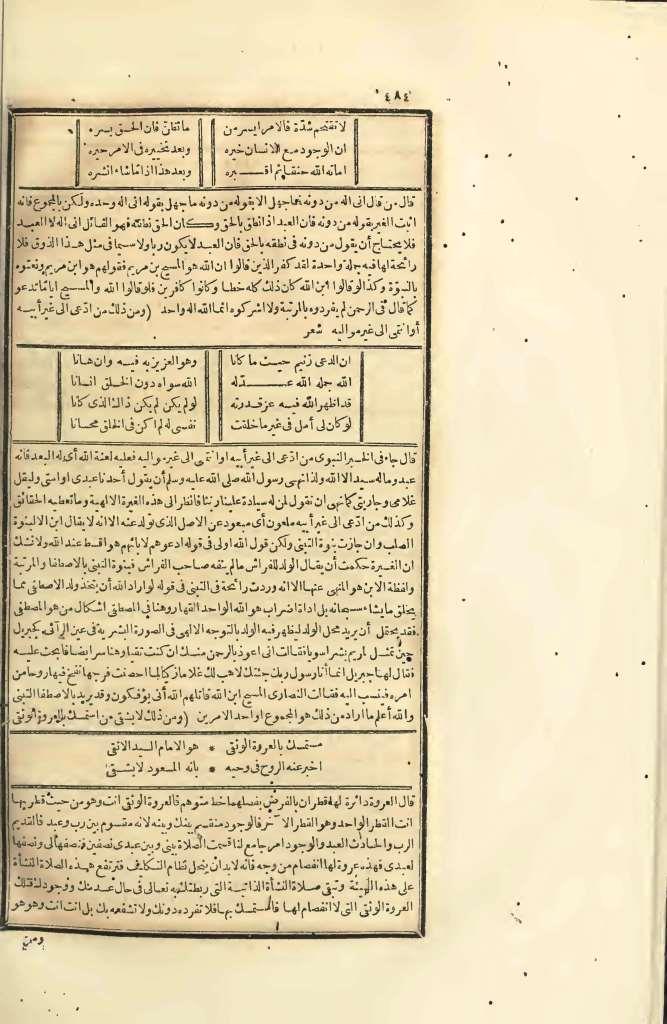 ٤٨٤
لا تقتحم شدّة فالامر أيسر من ما تتقاتق فان الحق يسره
ان الوجود مع الانسان خيره وبعد تخييره فى الامر حيره
اماته الله حتفا ثم أقبره وبعد هذا اذا ما شاء انشره
قال من قال انى اله من دونه فما جهل الا بقوله من دونه ما جهل بقوله انى اله وحده ولكن بالمجموع فانه
اثبت الغير بقوله من دونه فان العبد اذا نطق بالحق وكان الحق نطقه فهو القائل انى اله لا العبد
فلا يحتاج أن يقول من دونه فى نطقه بالحق فان العبد لا يكون ربا ولا سيما فى مثل هذا الذوق فلا
رائحة لها فيه جملة واحدة لقد كفر الذين قالوا ان الله هو المسيح بن مريم فقولهم هو ابن مريم ونعتوه
بالبنوّة وكذا لو قالوا ابن الله كان ذلك كله خطأ وكانوا كافرين فلو قالوا الله والمسيح ايا ما تدعو
كما قال فى الرحمن لم يفردوه بالمرتبة ولا أشركوه انما الله اله واحد (ومن ذلك من ادّعى الى غير أبيه
أو انتمى الى غير مواليه شعر
ان الدعى زنيم حيث ما كانا وهو العزيز به فيه وان هانا
الله جمله الله عدّله الله سواه دون الخلق انسانا
قد اظهر الله فيه عز قدرته لو لم يكن لم يكن ذاك الذى كانا
لو كان لى أمل فى غير ما خلقت نفسى له لم اكن فى الخلق محانا
قال جاء فى الخبر النبوى من ادّعى الى غير أبيه أو انتمى الى غير مواليه فعليه لعنة الله أى له البعد فانه
عبد وماله سيد الا الله ولذا نهى رسول الله صلى الله عليه وسلم أن يقول أحدنا عبدى أو أمتى وليقل
غلامى وجاريتى كما نهى ان نقول لمن له سيادة علينا ربنا فانظر الى هذه الغيرة الالهية وما تعطيه الحقائق
وكذلك من ادّعى الى غير أبيه ملعون أى مبعود عن الاصل الذى تولد عنه الا انه لا يقال ابن الا لبنوّة
الصلب وان جازت بنوة التبنى ولكن قول الله اولى فى قوله ادعوهم لابائهم هو اقسط عند الله ولا نشك
ان الغيرة حكمت أن يقال الولد للفراش مالم ينفه صاحب الفراش فبنوة التبنى بالاصطفاء والمرتبة
ولفظة الابن هو المنهى عنها الا انه وردت رائحة فى التبنى فى قوله لو أراد الله أن يتخذ ولدا لاصطفى مما
يخلق ما يشاء سبحانه بل اداة اضراب هو الله الواحد القهار وهنا فى المصطفى اشكال من هو المصطفى
فقد يحتمل أن يريد محل الولد ليظهر فيه الولد بالتوجه الالهى فى الصورة البشريه فى عين الرائى كجبريل
حين تمثل لمريم بشرا سويا فقالت انى اعوذ بالرحمن منك ان كنت تقيا وهنا سر ايضا فابحث عليه
فقال لها جبريل انما أنا رسول ربك جئتك لأهب لك غلاما زكيا لما احصنت فرجها نفخ فيها روحا من
امره فنسب اليه فقالت النصارى المسيح ابن الله قاتلهم الله أنى يؤفكون وقد يريد بالاصطفاء التبنى
والله أعلم ما اراد من ذلك هو المجموع او احد الامرين (ومن ذلك لا يشقى من استمسك بالعروة الوثقى
مستمسك بالعروة الوثقى * هو الامام السيد الاتقى
اخبر عنه الروح فى وحيه * بانه المسعود لا يشقى
قال العروة دائرة لها قطران بالفرض يفصلهما خط متوهم فالعروة الوثقى انت وهو من حيث قطريها
انت القطر الواحد وهو القطر الآخر فالوجود منقسم بينك وبينه لانه مقسوم بين رب وعبد فالقديم
الرب والحادث العبد والوجود امر جامع لنا قسمت الصلاة بينى وبين عبدى نصفين فنصفها لى ونصفها
لعبدى فهذه عروة لها انفصام من وجه فانه لابد ان ينحل نظام التكاليف فترتفع هذه الصلاة المنشأة
على هذه الهيئة وتبقى صلاة النشأة الذاتية التى ربطتك به تعالى فى حال عدمك ووجودك فتلك
العروة الوثقى التى لا انفصام لها فالمستمسك بها فلا تفرده دونك ولا تشفعه بك بل انت انت وهو هو
ومن